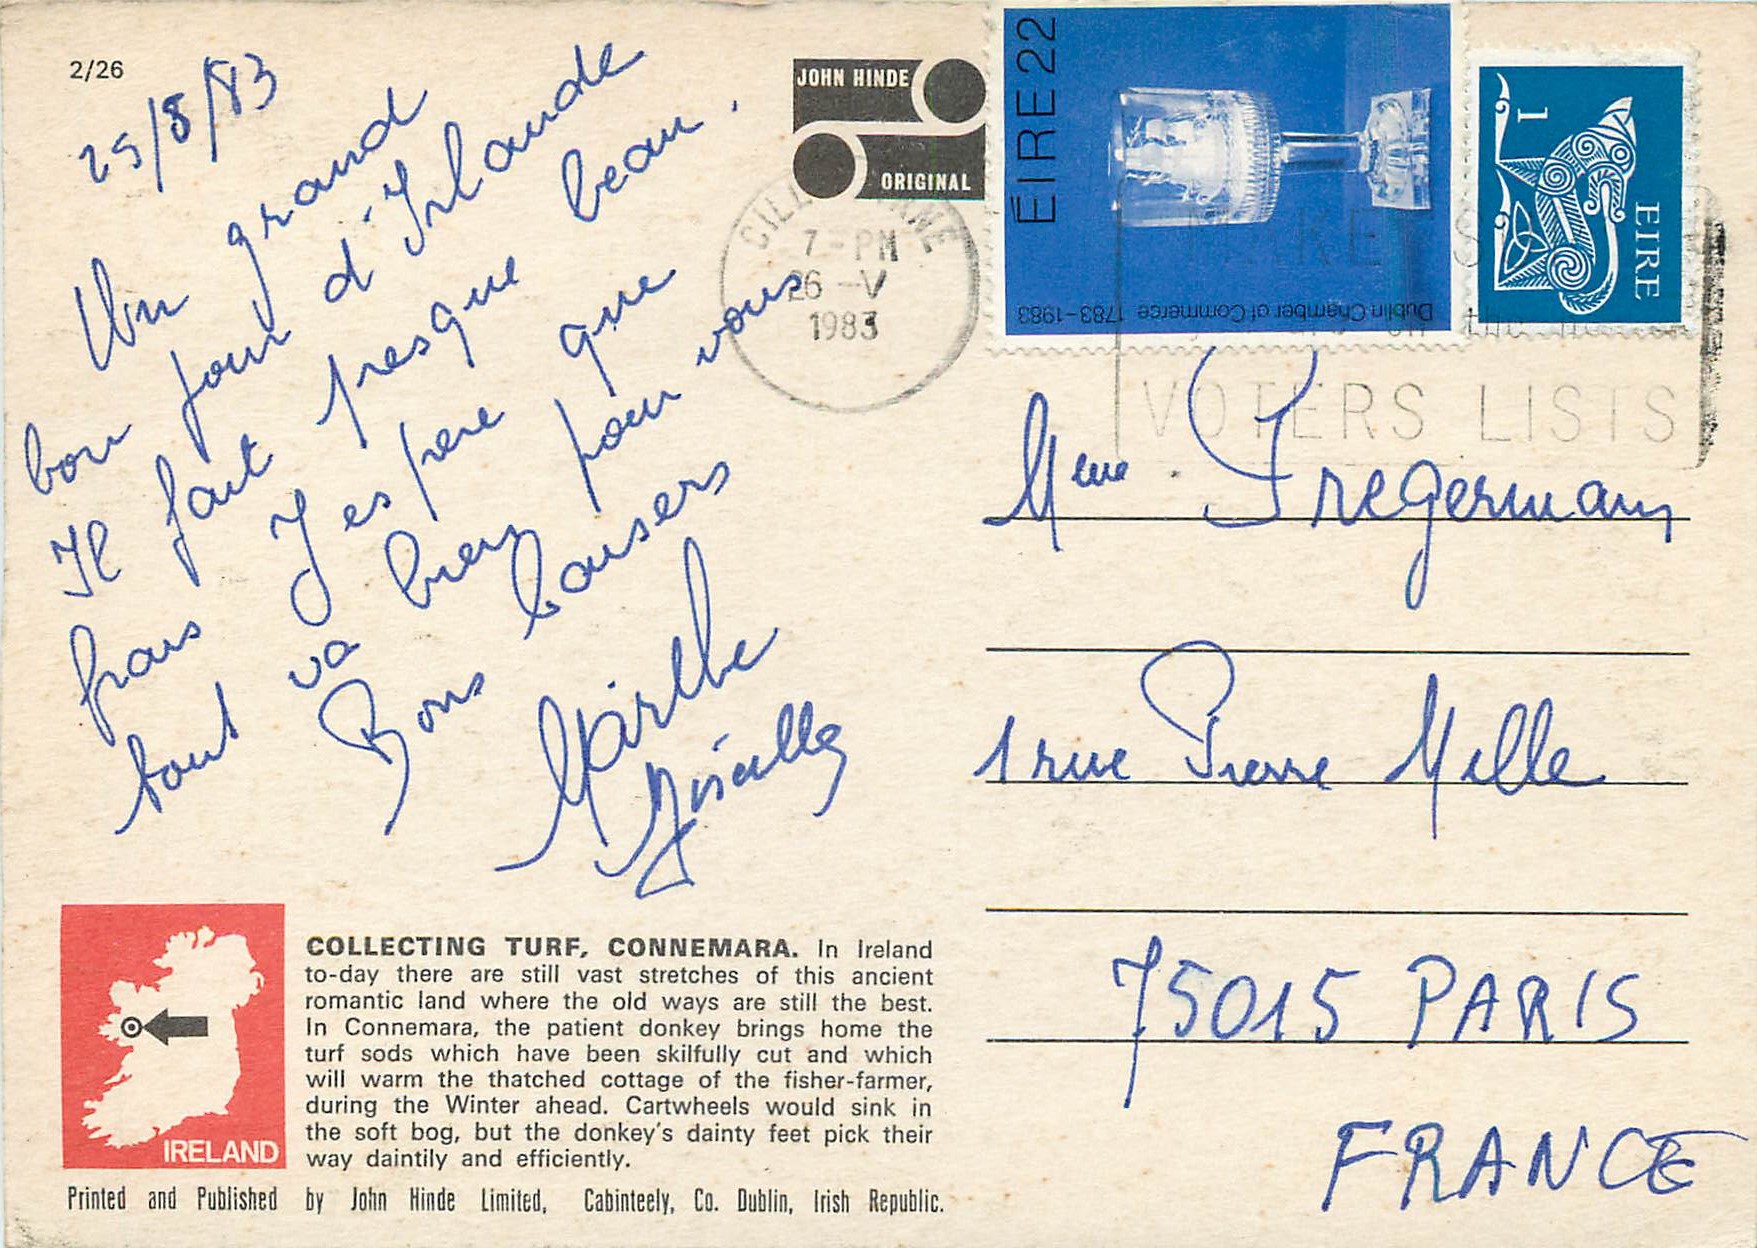 2/26
25/8/83
Un grand
bon jour d'Irlande
Il fait presque beau.
frais J'espere que
tout va bien pour vous
Bons baisers
Marthe
JOHN HINDE
ORIGINAL
7-PM
26-V
1983
EIRE 22
Dublin Chamber of Commerce 1783-1983
1
EIRE
VOTERS LISTS
Mme Tregermain
1 rue Pierre Mille
75015 PARIS
FRANCE
IRELAND
COLLECTING TURF, CONNEMARA. In Ireland
to-day there are still vast stretches of this ancient
romantic land where the old ways are still the best.
In Connemara, the patient donkey brings home the
turf sods which have been skilfully cut and which
will warm the thatched cottage of the fisher-farmer,
during the Winter ahead. Cartwheels would sink in
the soft bog, but the donkey's dainty feet pick their
way daintily and efficiently.
Printed and Published by John Hinde Limited, Cabinteely, Co. Dublin, Irish Republic.